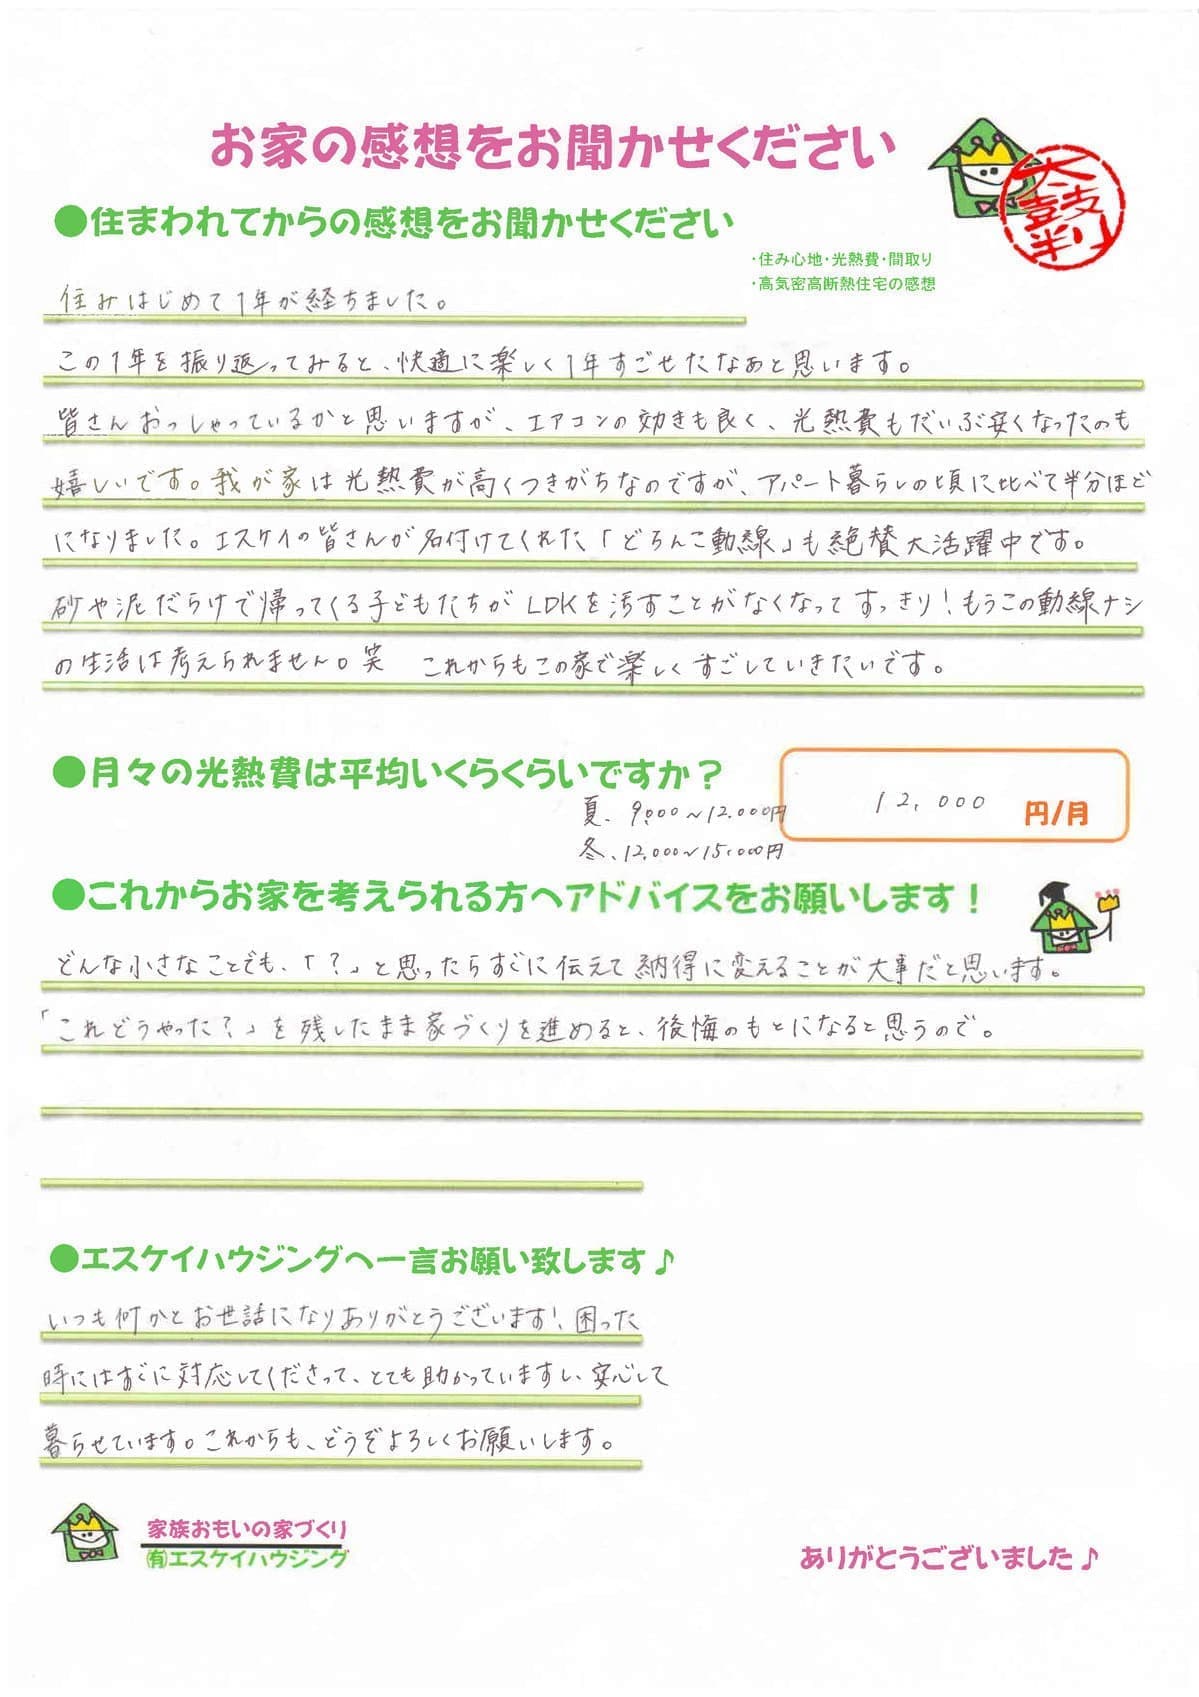 お家の感想をお聞かせください
太鼓判
●住まわれてからの感想をお聞かせください
・住み心地・光熱費・間取り
・高気密高断熱住宅の感想
住みはじめて1年が経ちました。
この1年を振り返ってみると、快適に楽しく1年すごせたなぁと思います。
皆さんおっしゃっているかと思いますが、エアコンの効きも良く、光熱費もだいぶ安くなったのも
嬉しいです。我が家は光熱費が高くつきがちなのですが、アパート暮らしの頃に比べて半分ほど
になりました。エスケイの皆さんが名付けてくれた「どろんこ動線」も絶賛大活躍中です。
砂や泥だらけで帰ってくる子どもたちがLDKを汚すことがなくなってすっきり!もうこの動線ナシ
の生活は考えられません。笑 これからもこの家で楽しくすごしていきたいです。
●月々の光熱費は平均いくらくらいですか?
12,000 円/月
夏、9,000~12,000円
冬、12,000~15,000円
●これからお家を考えられる方へアドバイスをお願いします!
どんな小さなことでも、「?」と思ったらすぐに伝えて納得に変えることが大事だと思います。
「これどうやった?」を残したまま家づくりを進めると、後悔のもとになると思うので。
●エスケイハウジングへ一言お願い致します♪
いつも何かとお世話になりありがとうございます!困った
時にはすぐに対応してくださって、とても助かっていますし、安心して
暮らせています。これからも、どうぞよろしくお願いします。
家族おもいの家づくり
㈲エスケイハウジング
ありがとうございました♪